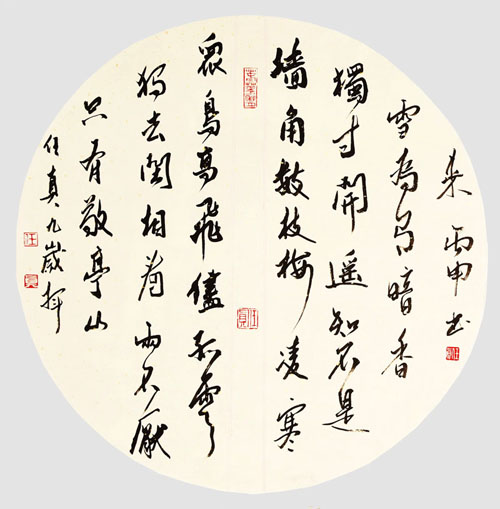 墙角数枝梅凌寒
獨自開遥知不是
雪為有暗香
来 丙申书
眾鳥高飛儘孤雲
独去閑相看兩不厭
只有敬亭山
任真九歲挥